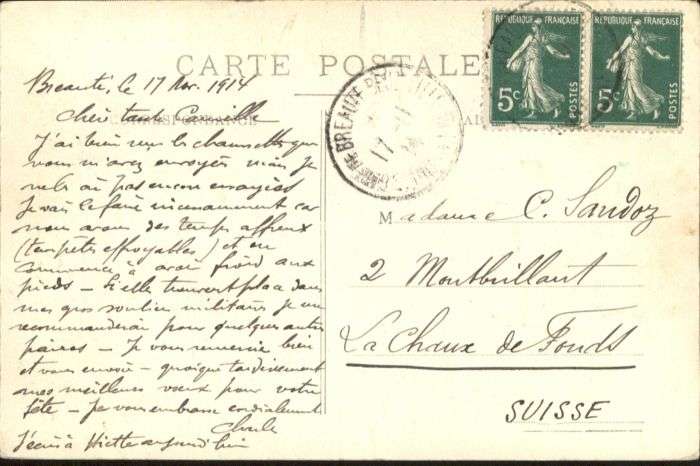 CARTE POSTALE
Breauté, le 17 Nov. 1914
CORRESPONDANCE
Chère tante Camille
J'ai bien reçu les chaussettes que
vous m'avez envoyées mais je
ne les ai pas encore essayées
Je vais le faire incessamment car
nous avons des temps affreux
(tempetes effroyables) et on
commence à avoir froid aux
pieds – Si elle trouvent place dans
mes gros souliers militaires je me
recommanderai pour quelques autres
paires – Je vous remercie bien
et vous envoie – quoique tardivement
mes meilleurs vœux pour votre
fête – Je vous embrasse cordialement
Charles
J'écris à aujourd'hui
BREAUTE
17
RÉPUBLIQUE FRANÇAISE
5c
POSTES
RÉPUBLIQUE FRANÇAISE
5c
POSTES
Madame C. Sandoz
2 Montbrillant
La Chaux de Fonds
SUISSE